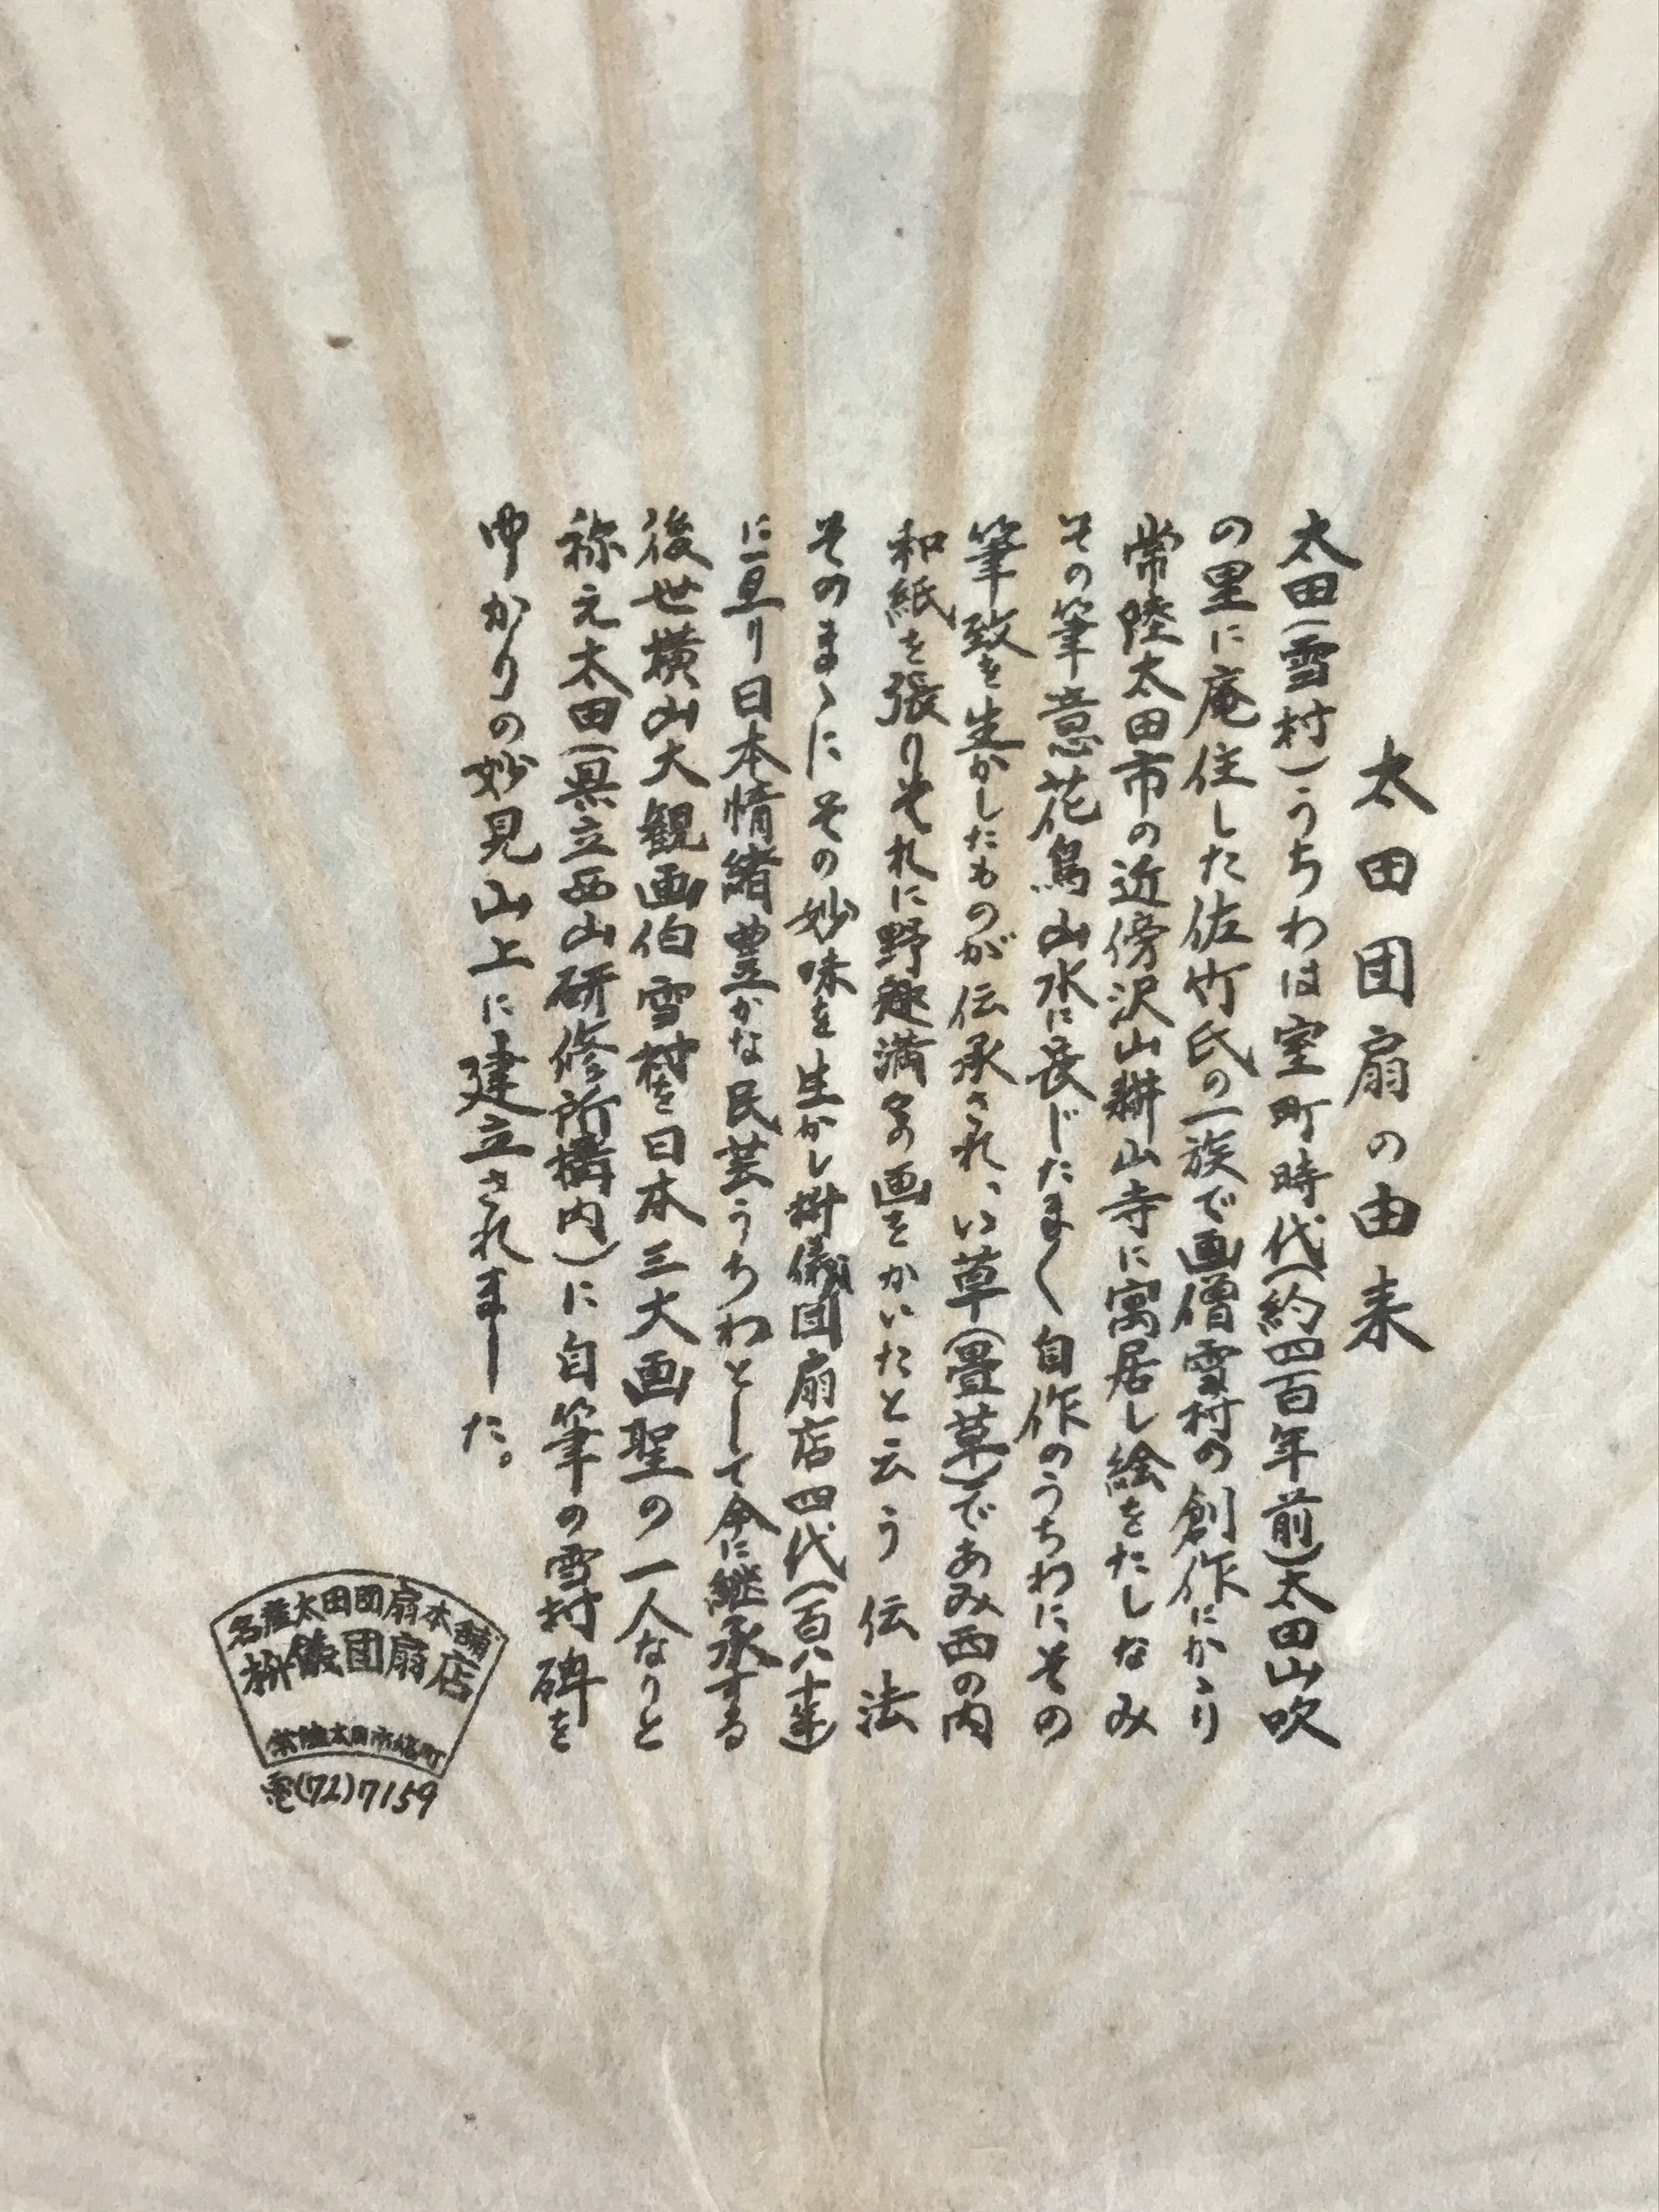 太田団扇の由来
太田(雪村)うちわは室町時代(約四百年前)太田山吹
の里に庵住した佐竹氏の一族で画僧雪村の創作にかゝり
常陸太田市の近傍沢山耕山寺に寓居し絵をたしなみ
その筆意花鳥山水に長じたまく自作のうちわにその
筆致を生かしたものが伝承され、い草(畳草)であみ西の内
和紙を張りそれに野趣満々の画をかいたと云う伝法
そのまゝにその妙味を生かし枡儀団扇店四代(百八十年)
に亘り日本情緒豊かな民芸うちわとして今に継承する
後世横山大観画伯雪村を日本三大画聖の一人なりと
称え太田(県立西山研修所構内)に自筆の雪村碑を
ゆかりの妙見山上に建立されました。
名産太田団扇本舗
枡儀団扇店
常陸太田市塙町
電(72)7159